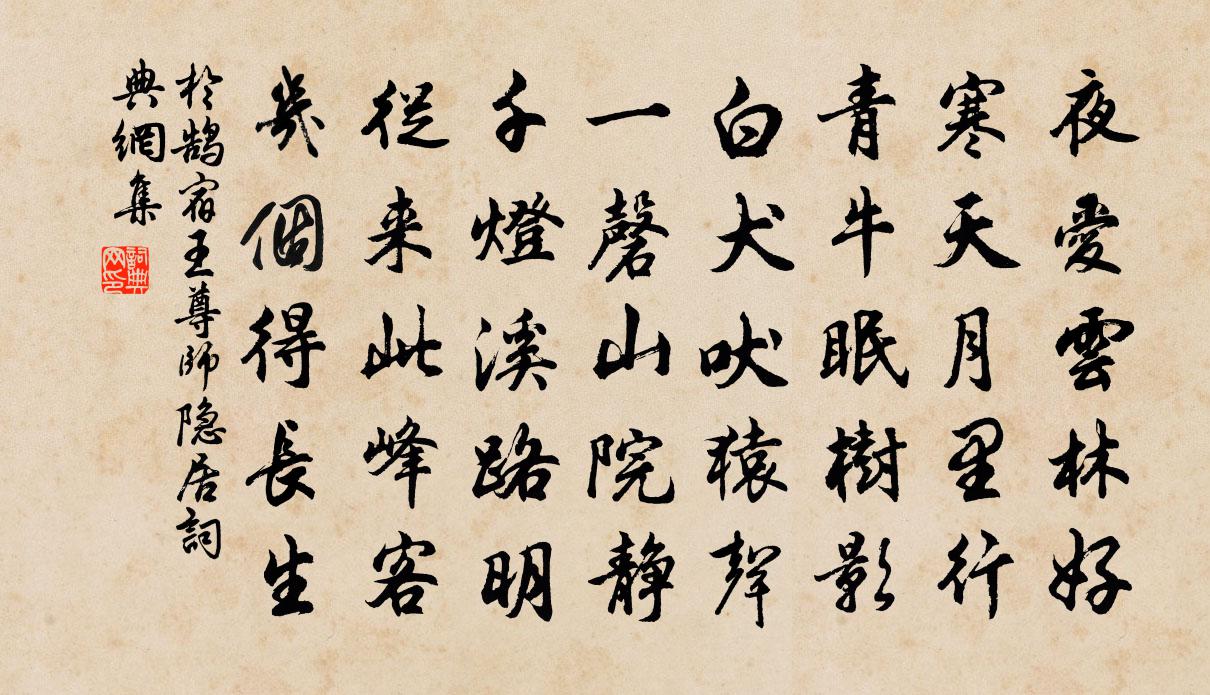 夜愛雲林好
寒天月里行
青牛眠樹影
白犬吠猿聲
一磬山院静
千燈溪路明
從来此峰客
幾個得長生
於鵠宿王尊師隐居詞
典網集
詞典
网印